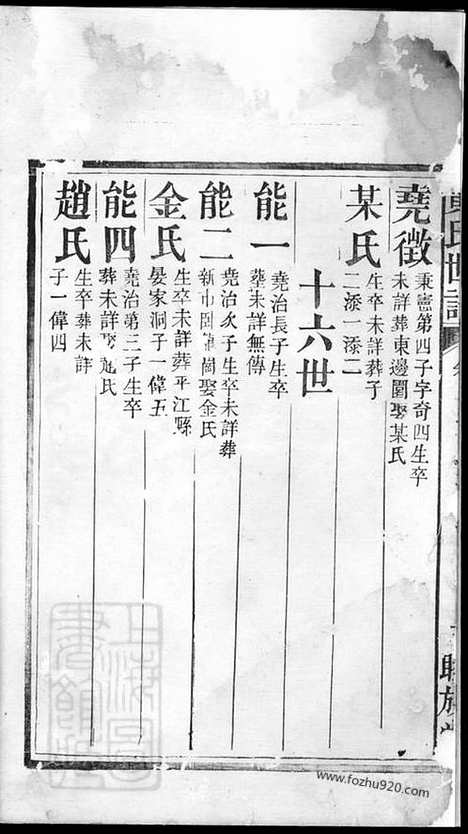 堯徵
秉憲第四子字奇四生卒
未詳葬東邊園娶某氏
某氏
生卒未詳葬子
二添一添二
十六世
能一
堯治長子生卒
葬未詳無傳
能二
堯治次子生卒未詳葬
新市園 崗娶金氏
金氏
生卒未詳葬平江縣
晏家洞子一偉五
能四
堯治第三子生卒
葬未詳娶趙氏
趙氏
生卒葬未詳
子一偉四
氏世譜
睦族堂
上海圖書館藏
www.fozhu920.com